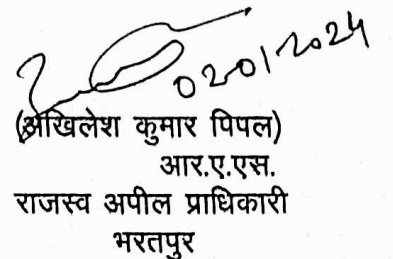 02-01-2024
(अखिलेश कुमार पिपल)
आर.ए.एस.
राजस्व अपील प्राधिकारी
भरतपुर